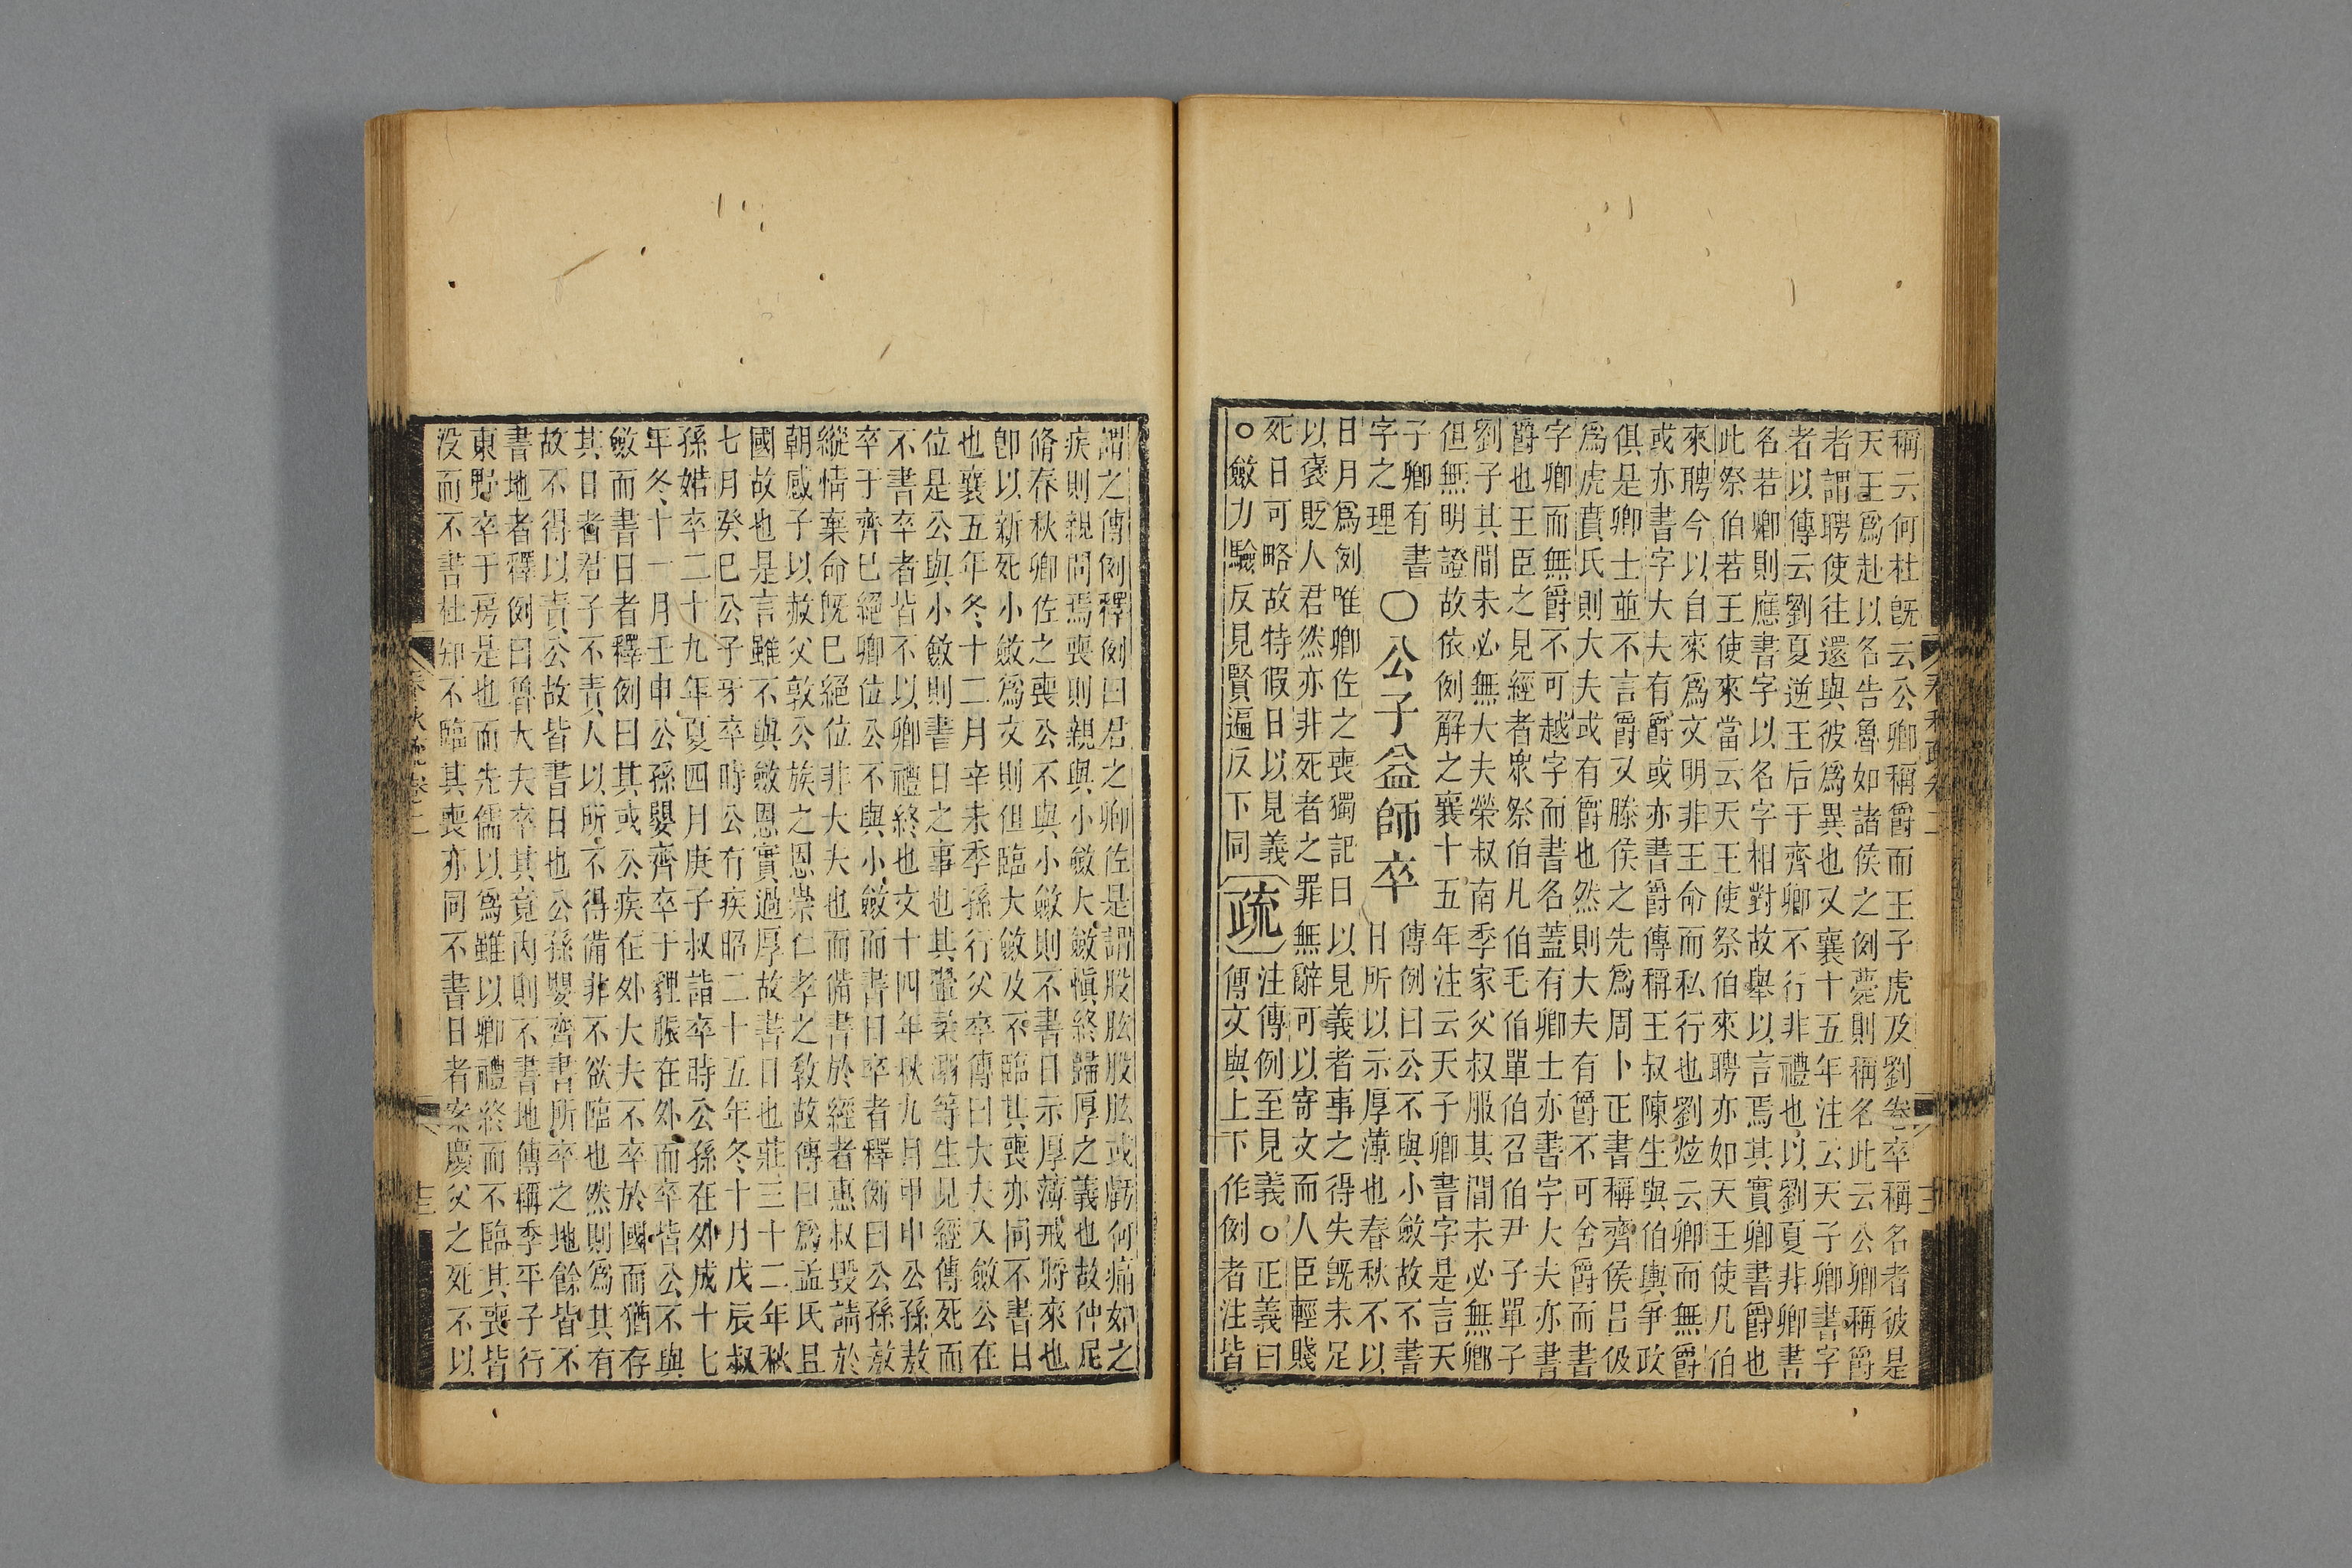 稱云何杜旣云公卿稱爵而王子虎及劉卷卒稱名者彼是
天王爲赴以名告魯如諸侯之例薨則稱名此云公卿稱爵
者謂聘使往還與彼爲異也又襄十五年注云天子卿書字
者以傳云劉夏逆王后于齊卿不行非禮也以劉夏非卿書
名若卿則應書字以名字相對故舉以言焉其實卿書爵也
此祭伯若王使來當云天王使祭伯來聘亦如天王使凡伯
來聘今以自來爲文明非王命而私行也劉炫云卿而無爵
或亦書字大夫有爵或亦書爵傳稱王叔陳生與伯輿爭政
俱是卿士並不言爵又滕侯之先爲周卜正書稱齊侯呂伋
爲虎賁氏則大夫或有爵也然則大夫有爵不可舍爵而書
字卿而無爵不可越字而書名蓋有卿士亦書字大夫亦書
爵也王臣之見經者衆祭伯凡伯毛伯單伯召伯尹子單子
劉子其間未必無大夫榮叔南季家父叔服其間未必無卿
但無明證故依例解之襄十五年注云天子卿書字是言天
子卿有書
字之理
〇公子益師卒
傳例曰公不與小斂故不書
日所以示厚薄也春秋不以
日月爲例唯卿佐之喪獨記日以見義者事之得失旣未足
以褒貶人君然亦非死者之罪無辭可以寄文而人臣輕賤
死日可略故特假日以見義
○斂力驗反見賢遍反下同
疏
注傳例至見義○正義曰
傳文與上下作例者注皆
謂之傳例釋例曰君之卿佐是謂股肱股肱或虧何痛如之
疾則親問焉喪則親與小斂大斂愼終歸厚之義也故仲尼
脩春秋卿佐之喪公不與小斂則不書日示厚薄戒將來也
卽以新死小斂爲文則但臨大斂及不臨其喪亦同不書日
也襄五年冬十二月辛未季孫行父卒傳曰大夫入斂公在
位是公與小斂則書日之事也其聲等生見經傳死而
不書卒者皆不以卿禮終也文十四年秋九月甲申公孫敖
卒于齊已絕卿位公不與小斂而書日卒者釋例曰公孫敖
縱情棄命旣已絕位非大夫也而備書於經者惠叔毀請於
朝感子以赦父敦公族之恩崇仁孝之敎故傳曰爲孟氏且
國故也是言雖不與斂恩實過厚故書日也莊三十二年秋
七月癸巳公子牙卒時公有疾昭二十五年冬十月戊辰叔
孫婼卒二十九年夏四月庚子叔詣卒時公孫在外成十七
年冬十一月壬申公孫嬰齊卒于貍脤在外而卒皆公不與
斂而書日者釋例曰其或公疾在外大夫不卒於國而猶存
其日者君子不責人以所不得備非不欲臨也然則爲其有
故不得以責公故皆書日也公孫嬰齊書所卒之地餘皆不
書地者釋例曰魯大夫卒其竟內則不書地傳稱季平子行
東野卒于房是也而先儒以爲雖以卿禮終而不臨其喪皆
没而不書杜知不臨其喪亦同不書日者案慶父之死不以